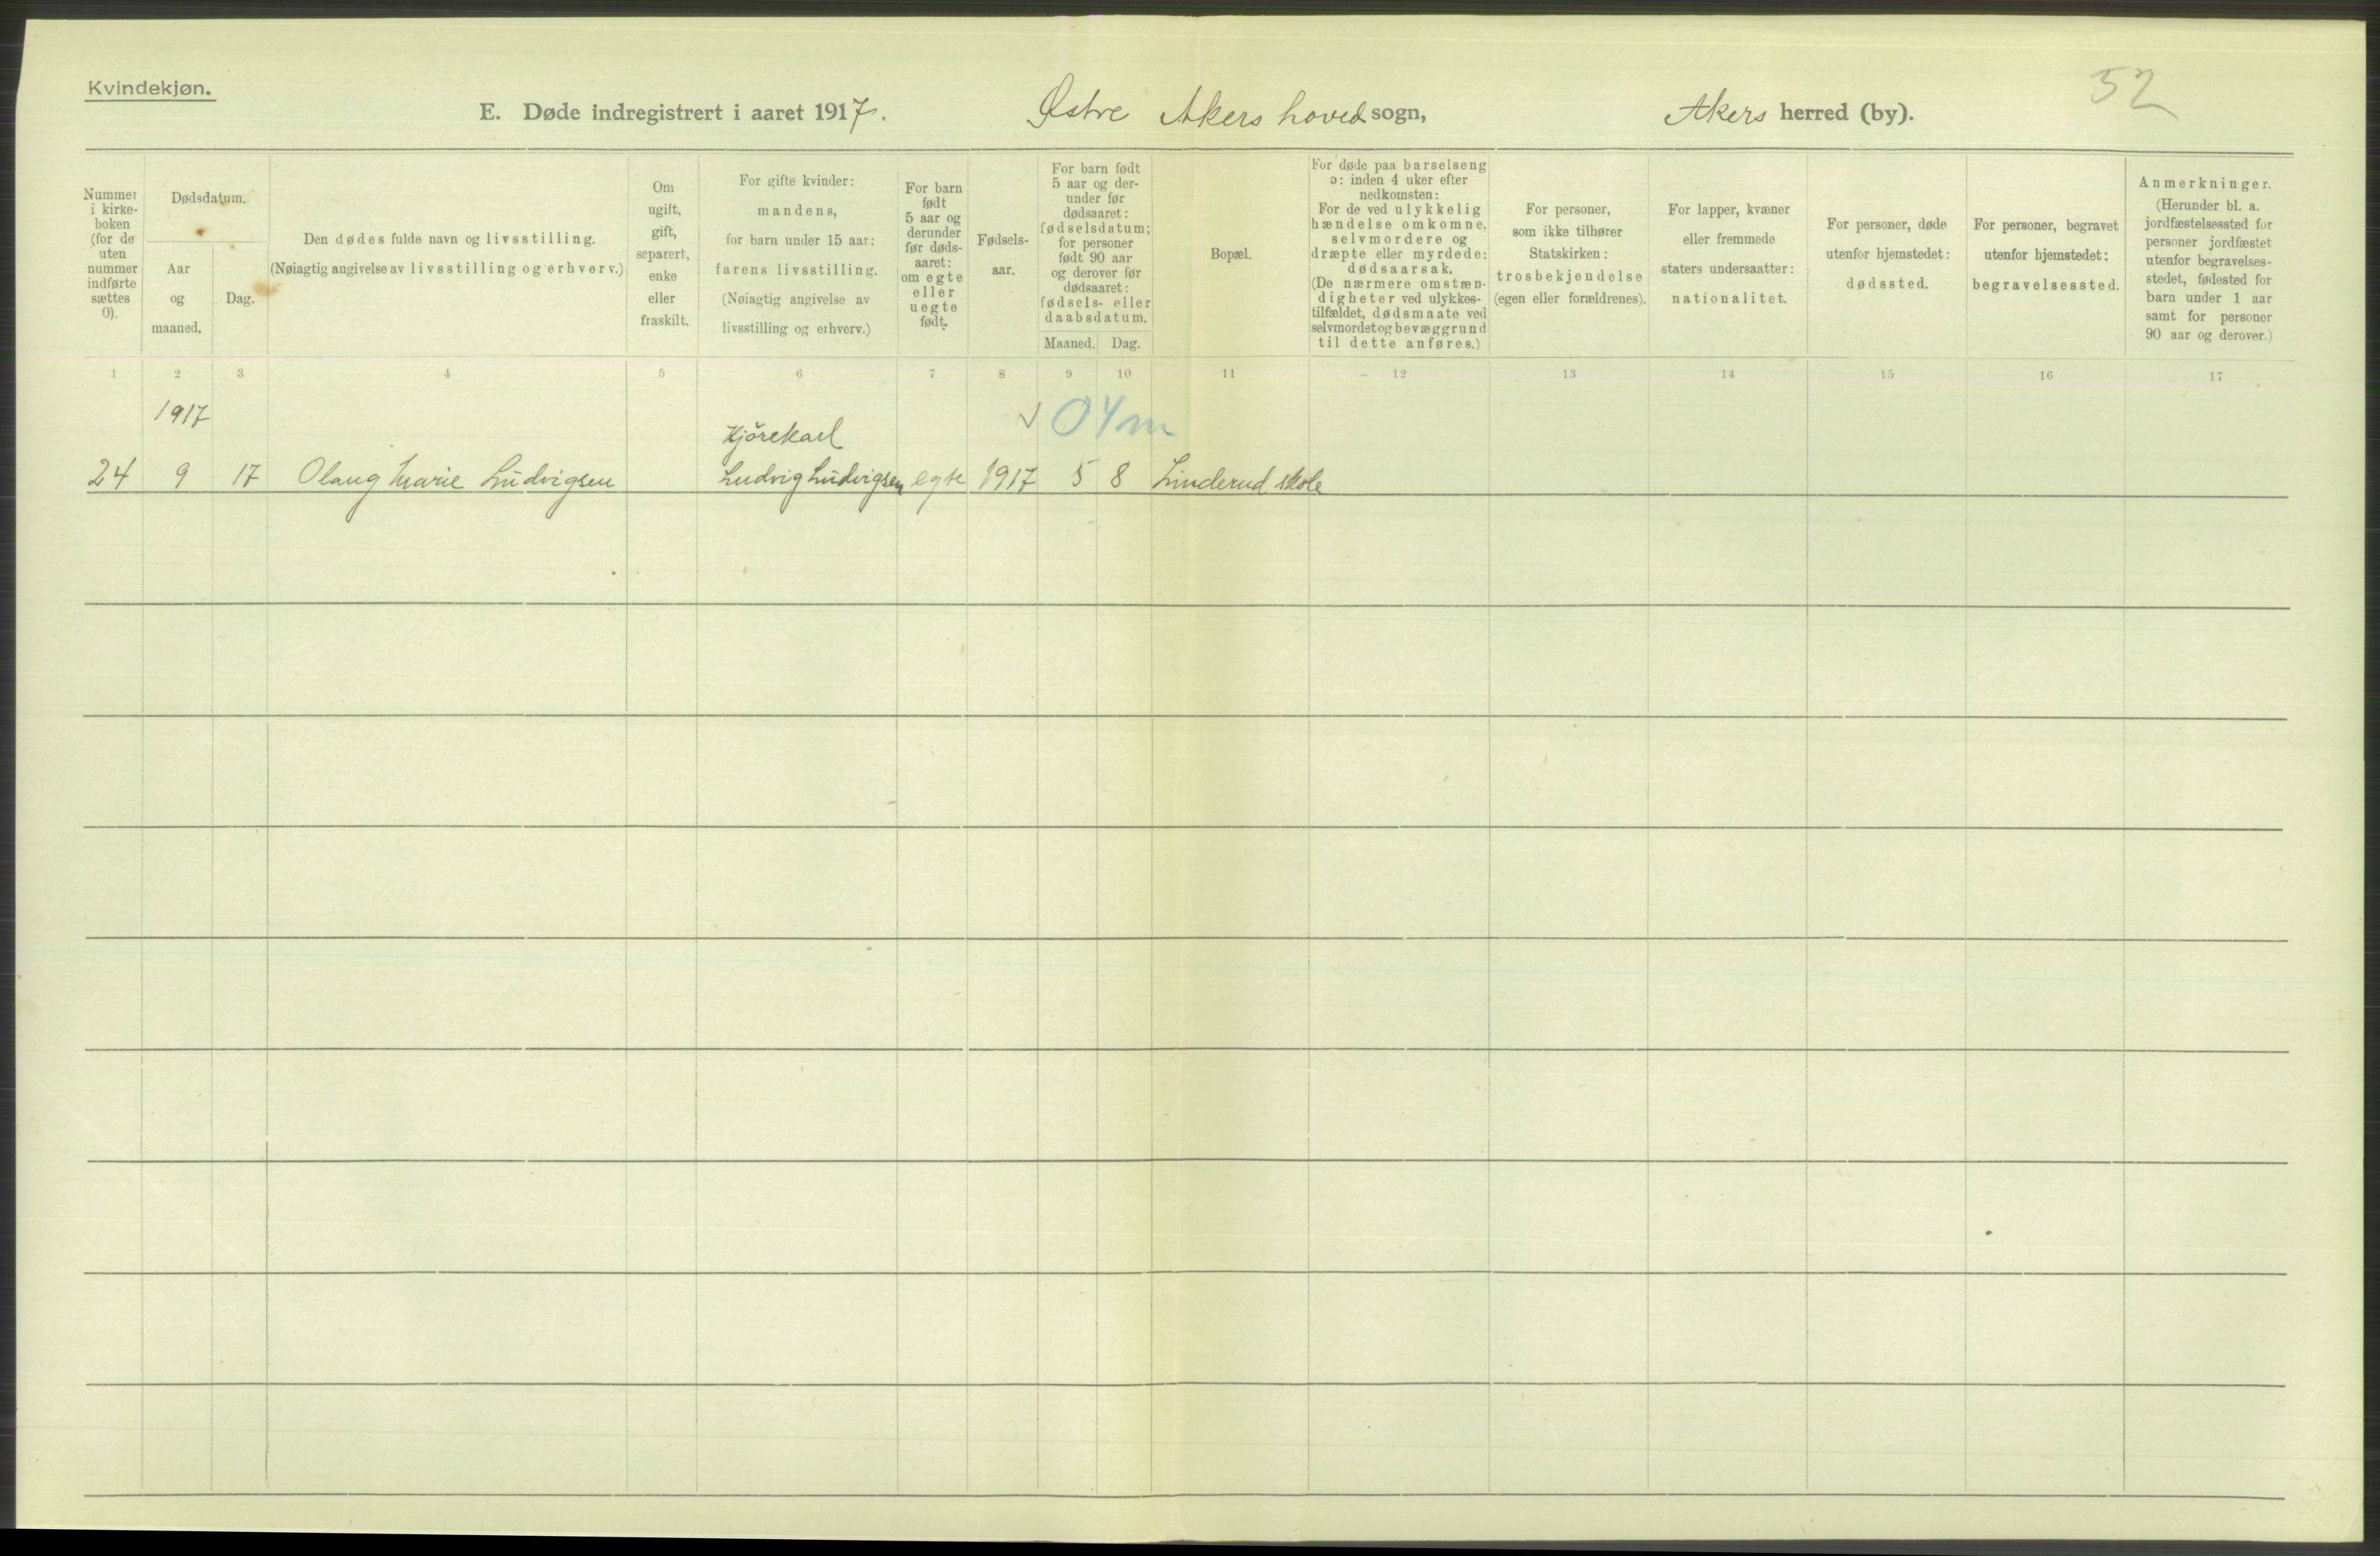 Kvindekjøn.
52
E. Døde indregistrert i aaret 1917. Østre Akers hoved sogn, Akers herred (by).
Nummer
i kirke-
boken
(for de
uten
nummer
indførte
sættes
0).
Dødsdatum.
Aar
og
maaned.
Dag.
Den dødes fulde navn og livsstilling.
(Nøiagtig angivelse av livsstilling og erhverv.)
Om
ugift,
gift,
separert,
enke
eller
fraskilt.
For gifte kvinder:
mandens,
for barn under 15 aar:
farens livsstilling.
(Nøiagtig angivelse av
livsstilling og erhverv.)
For barn
født
5 aar og
derunder
før døds-
aaret:
om egte
eller
uegte
født.
Fødsels-
aar.
For barn født
5 aar og der-
under før
dødsaaret:
fødselsdatum;
for personer
født 90 aar
og derover før
dødsaaret:
fødsels- eller
daabsdatum.
Maaned. Dag.
Bopæl.
For døde paa barselseng
ɔ: inden 4 uker efter
nedkomsten:
For de ved ulykkelig
hændelse omkomne,
selvmordere og
dræpte eller myrdede:
dødsaarsak.
(De nærmere omstæn-
digheter ved ulykkes-
tilfældet, dødsmaate ved
selvmordet og bevæggrund
til dette anføres.)
For personer,
som ikke tilhører
Statskirken:
trosbekjendelse
(egen eller forældrenes).
For lapper, kvæner
eller fremmede
staters undersaatter:
nationalitet.
For personer, døde
utenfor hjemstedet:
dødssted.
For personer, begravet
utenfor hjemstedet:
begravelsessted.
Anmerkninger.
(Herunder bl. a.
jordfæstelsessted for
personer jordfæstet
utenfor begravelses-
stedet, fødested for
barn under 1 aar
samt for personer
90 aar og derover.)
1 2 3 4 5 6 7 8 9 10 11 12 13 14 15 16 17
1917 04m
Kjörekarl
24 9 17 Olaug Marie Ludvigsen Ludvig Ludvigsen egte 1917 5 8 Linderud skole